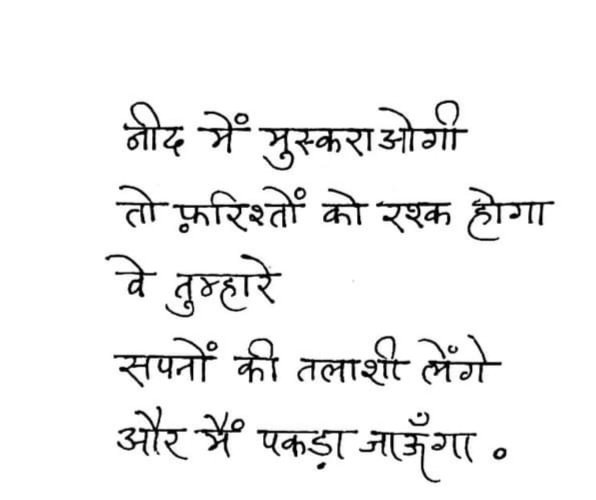 नीद में मुस्कराओगी
तो फ़रिश्तों को रश्क होगा
वे तुम्हारे
सपनों की तलाशी लेंगे
और मैं पकड़ा जाऊँगा .